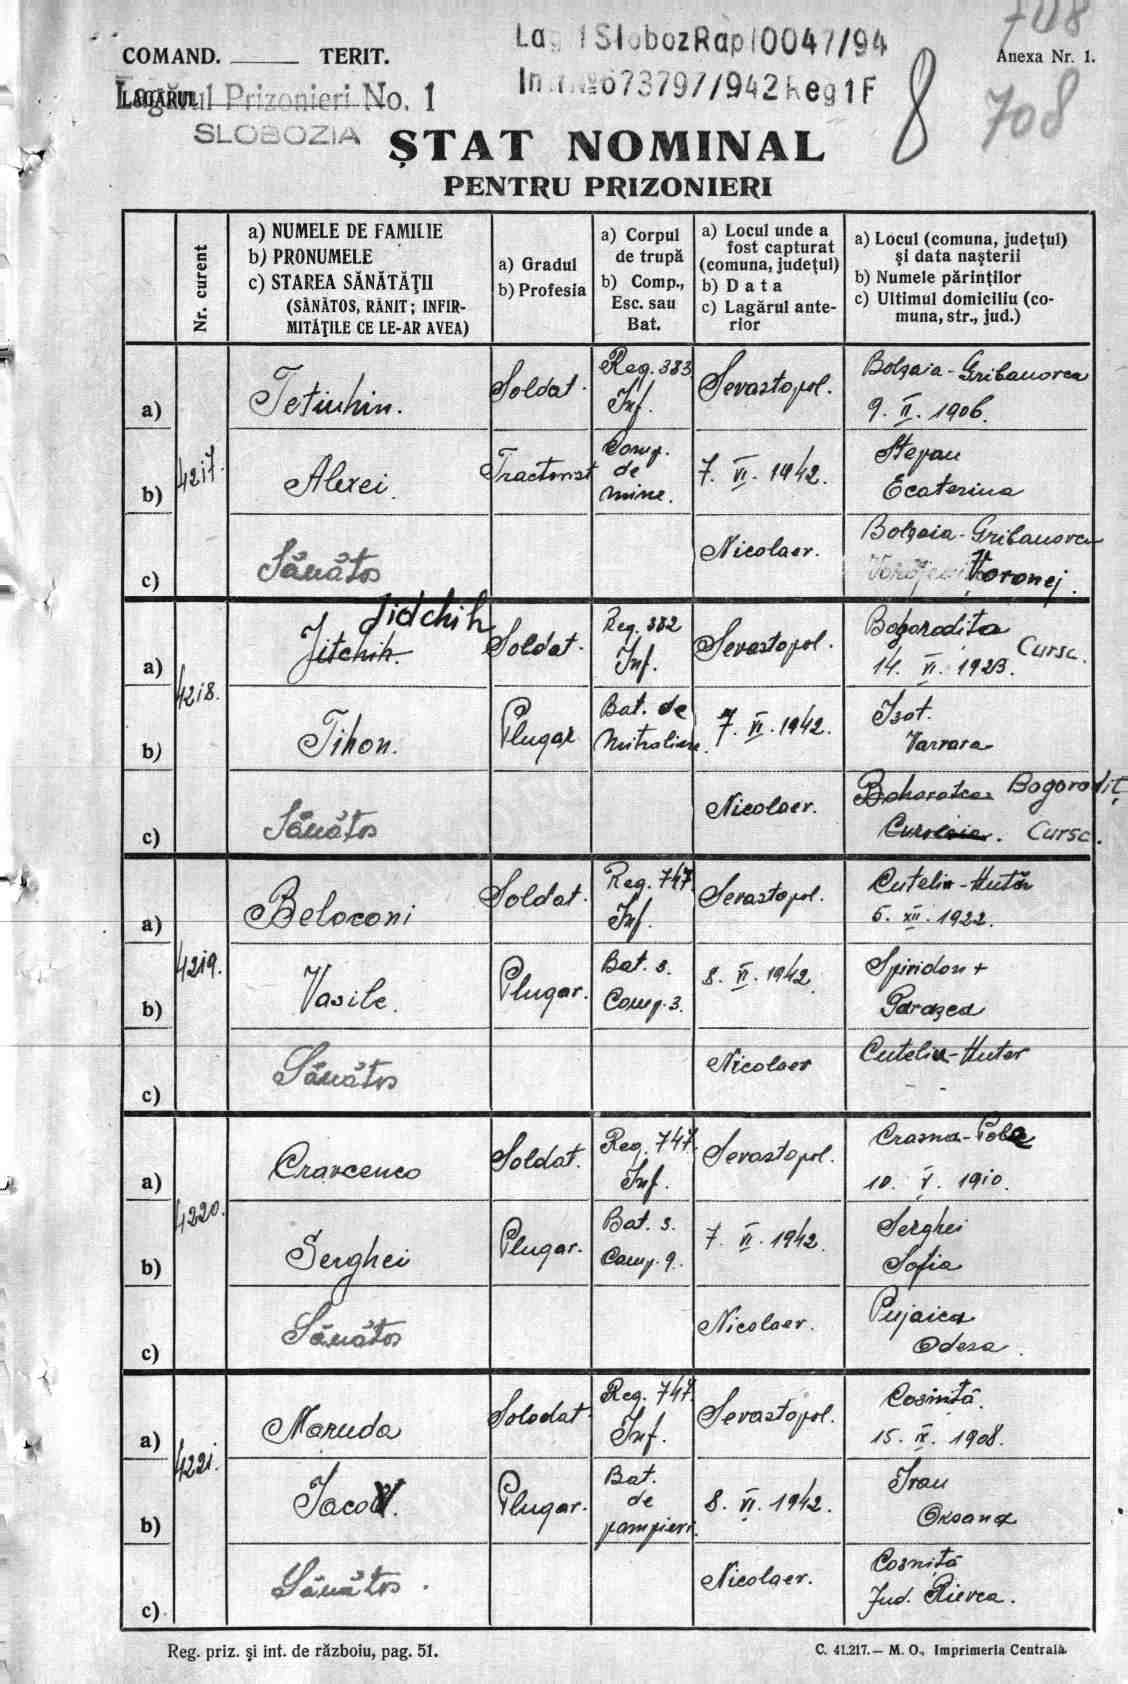 708
Lag 1 Sloboz Rap 10047/94
COMAND. TERIT.
Anexa Nr. 1.
673797/942 Reg 1 F
LAGĂRUL
Lagărul Prizonieri No. 1
8
708
SLOBOZIA
ȘTAT NOMINAL
PENTRU PRIZONIERI
Nr. curent
a) NUMELE DE FAMILIE
b) PRONUMELE
c) STAREA SĂNĂTĂŢII
(SĂNĂTOS, RĂNIT; INFIR-
MITĂŢILE CE LE-AR AVEA)
a) Gradul
b) Profesia
a) Corpul
de trupă
b) Comp.,
Esc. sau
Bat.
a) Locul unde a
fost capturat
(comuna, județul)
b) Data
c) Lagărul ante-
rior
a) Locul (comuna, județul)
și data nașterii
b) Numele părinților
c) Ultimul domiciliu (co-
muna, str., jud.)
4217.
a)
Tetiuhin.
Soldat.
Reg. 383
Inf.
Sevastopol.
Bolșaia-Gribanovca
9. II. 1906.
b)
Alexei.
Tractorist
Comp.
de
mine.
7. VI. 1942.
Stepan
Ecaterina
c)
Sănătos
Nicolaev.
Bolșaia-Gribanovca
Voronej.
4218.
a)
Jidchih
Jitchih.
Soldat.
Reg. 382
Inf.
Sevastopol.
Bogorodita
Cursc.
14. VI. 1923.
b)
Tihon.
Plugar
Bat. de
Mitraliere.
7. VI. 1942.
Izot.
Varvara
c)
Sănătos
Nicolaev.
Bogorodiț
Cursc.
4219.
a)
Beloconi
Soldat.
Reg. 747.
Inf.
Sevastopol.
Cutelin-Hutăr
6. XII. 1922.
b)
Vasile.
Plugar.
Bat. 3.
Comp. 3.
8. VI. 1942.
Spiridon +
Parașca
c)
Sănătos
Nicolaev
Cutelin-Hutor
4220.
a)
Cravcenco
Soldat.
Reg. 747.
Inf.
Sevastopol.
Crasna-Pole
10. V. 1910.
b)
Serghei
Plugar.
Bat. 3.
Comp. 9.
7. VI. 1942.
Serghei
Sofia
c)
Sănătos
Nicolaev.
Pujaica
Odesa.
4221.
a)
Maruda
Solodat.
Reg. 747.
Inf.
Sevastopol.
Cosnită.
15. IX. 1908.
b)
Iacov.
Plugar.
Bat.
de
pompieri.
8. VI. 1942.
Ivan
Oksana
c)
Sănătos.
Nicolaev.
Cosniță
Jud. Kievca.
Reg. priz. și int. de războiu, pag. 51.
C. 41.217.— M. O., Imprimeria Centrală.